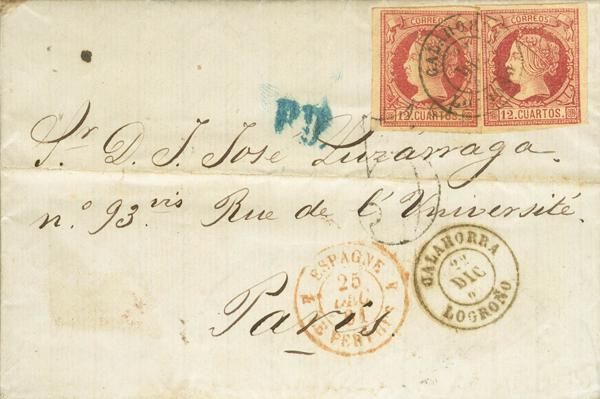 CORREOS CORREOS
12 CUARTOS. 12 CUARTOS.
CALAHO
PD
Sr. D. J. José Luzárraga.
n.º 93.vis Rue de l'Université.
Paris.
ESPAGNE
25
DEC.
61
CALAHORRA
DIC
LOGROÑO